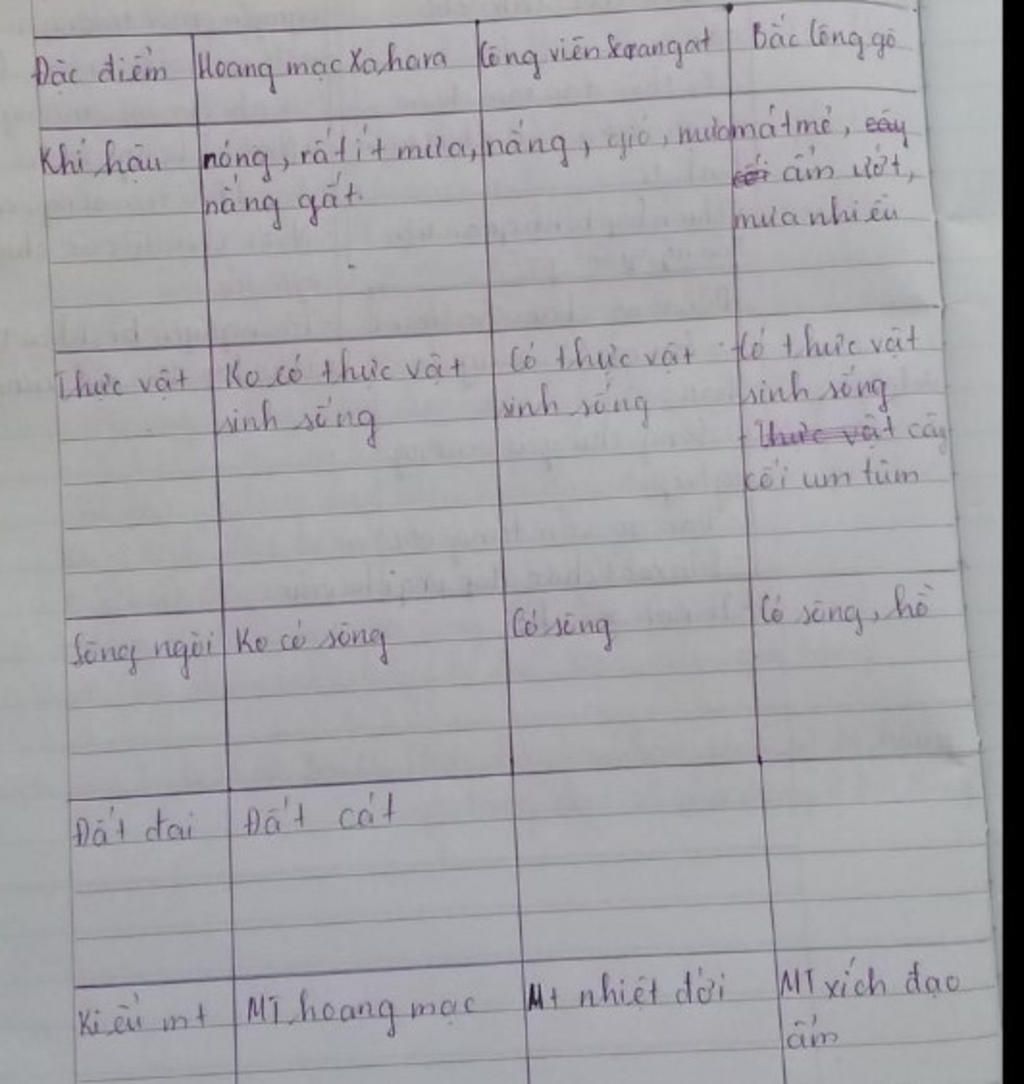 Đặc điểm | Hoang mạc Xa,hara | Công viên Xơrangat | Bắc Công gô
Khí hậu | nóng, rất ít mưa, | nắng, gió, mưa | mát mẻ, cây
nắng gắt. | cối ẩm ướt,
mưa nhiều
Thực vật | Ko có thực vật | Có thực vật | Có thực vật
sinh sống | sinh sống | sinh sống
Thực vật cây
cối um tùm
Sông ngòi | Ko có sông | Có sông | Có sông, hồ
Đất đai | Đất cát
Kiểu mt | MT hoang mạc | Mt nhiệt đới | MT xích đạo
ẩm